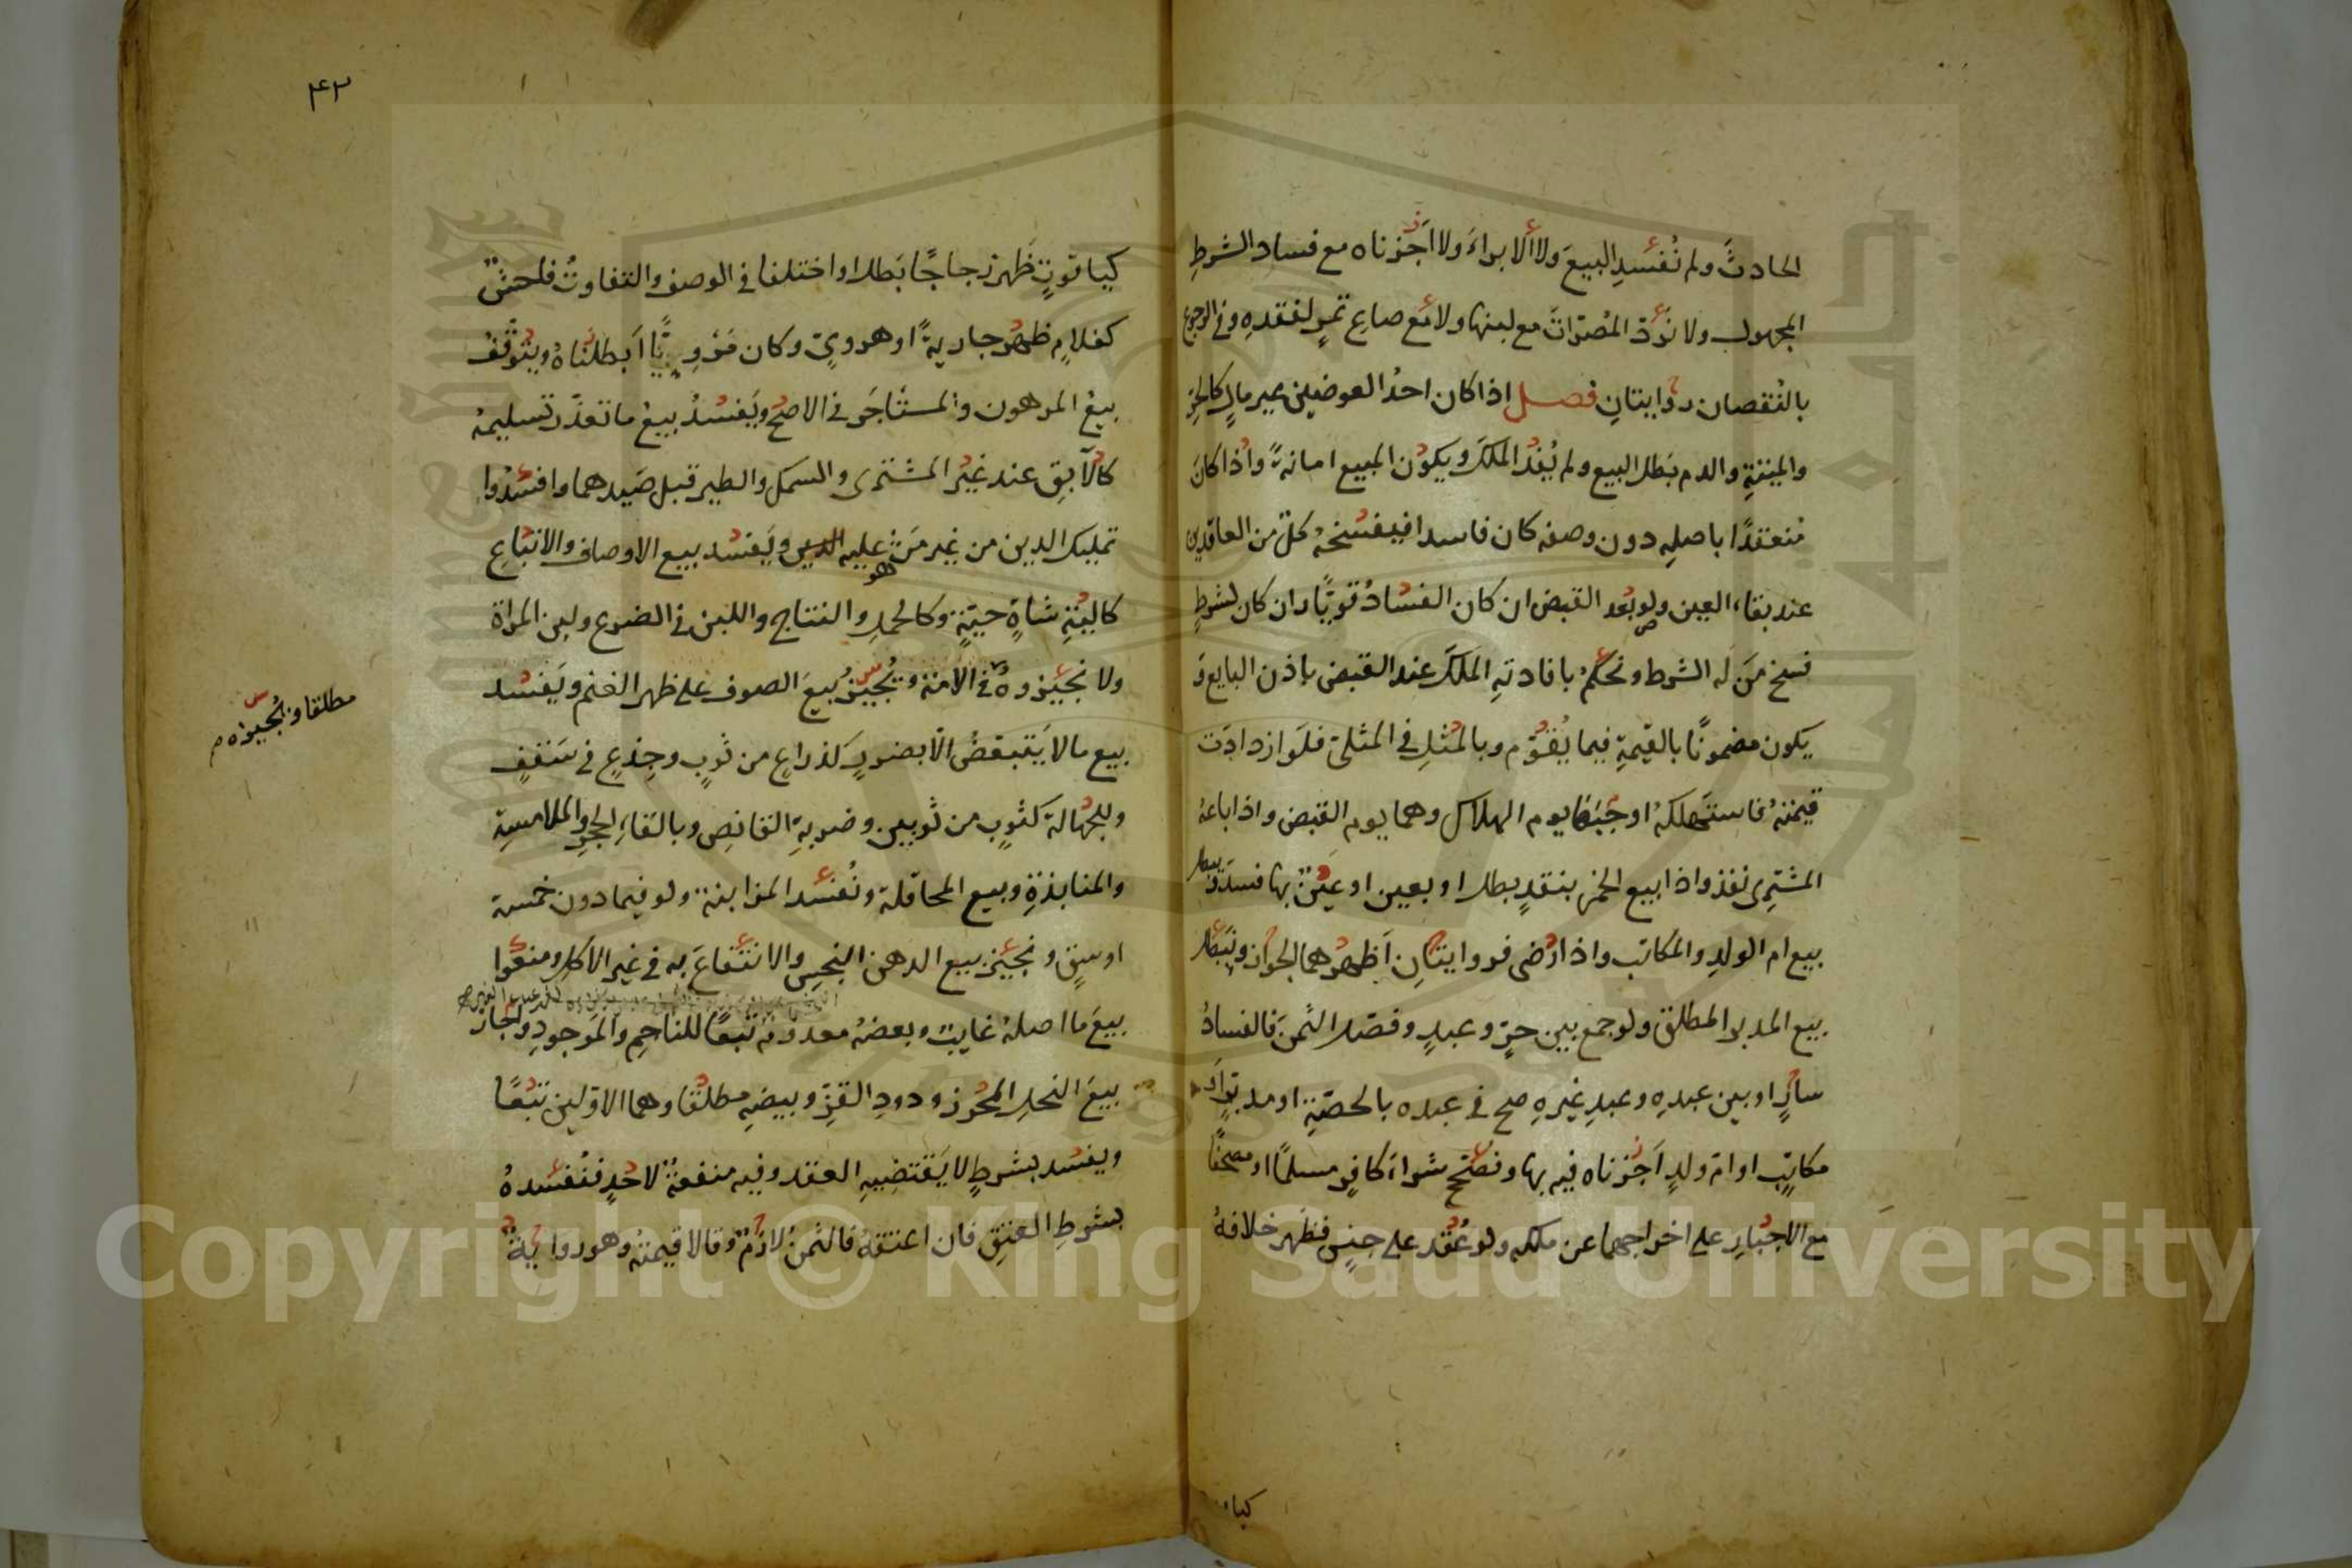 الحادثَ ولم نُفسدِ البيعَ ولا الابراءَ ولا اَجزناه مع فساد الشرطِ
المجهول ولا نردّ المُصرّاتَ مع لبنها ولا مع صاعِ تمرٍ لفقدهِ وفي الرجوع
بالنُقصان روايتانِ فصل اذا كان احدُ العوضين غير مالٍ كالحرِّ
والميتةِ والدم بَطل البيع ولم يُفدُ الملكَ ويكون المبيع امانةً واذا كانَ
مُنعقدًا باصلِهِ دون وصفه كان فاسدا فيفسخهُ كلّ من العاقدين
عند بقاء العين ولو بعد القبض ان كان الفسادُ قويًّا وان كان لشرطٍ
فسخ مَن لَه الشرط ونحكمُ بافادتهِ المَلكَ عند القبض باذن البايع وَ
يكون مضمونًا بالقيمةِ فيما يُقوّم وبالمثلِ في المثليّ فلَو ازدادَت
قيمتهُ فاستهلكهُ اوجبنا يوم الهلاك وهما يوم القبض واذا باعهُ
المشتِرى نفذ واذا ابيع الخمر بنقدٍ بطل او بعين او عينٌ بها فسدَ ويبطل
بيع ام الولدِ والمكاتب واذا ارضى فروايتانِ اَظهرُهما الجواز ونُبطل
بيع المدبر المطلق ولو جمع بين حرّ وعبدٍ وفصّل الثمنَ فالفسادُ
سارٍ او بين عبدهِ وعبدِ غيرهِ صح في عبده بالحصّةِ او مدبّرٍ اَو
مكاتبٍ او امّ ولدٍ اَجزناه فيه بها ونُصحّح شراءَ كافرٍ مسلمًا او مصحفًا
مع الاجبارِ على اخراجهما عن ملكه ولو عُقد على جنسٍ فظَهر خلافهُ
كياقوتٍ ظَهر زجاجًا بَطل او اختلفا في الوصف والتفاوتُ فاحشٌ
كغلامٍ ظهرُ جاريةً او هرويٍّ وكان مَرْوِيًّا اَبطلناهُ ويتوقّفُ
بيعُ المرهون والمستَأجَر في الاصحّ ويَفسُدُ بيعُ ما تعذّر تسليمهُ
كالآبِق عند غيرُ المشترى والسمك والطير قبل صَيدهما وافسدُوا
تمليك الدين من غير مَن عليه الدين ويَفسُد بيع الاوصاف والاتباعِ
هو
كاليةِ شاةٍ حيّةٍ وكالحملِ والنتاج واللبن في الضرع ولبن المراة
ولا نجيزوهُ في الامة ونُجيزُ بيعَ الصوف على ظهر الغنم ويَفسُد
مطلقا ونُجيزه م
بيع ما لا يَتبعّضُ الّا بضررٍ كذراعٍ من ثوبٍ وجِذعٍ في سَقفٍ
وللجهالةِ كثوبٍ من ثوبين وضربةِ القانِص وبالقاءِ الحجرِ والملامسةِ
والمنابذةِ وبيع المحاقلة ونُفسد المزابنة ولو فيما دون خمسة
اوسقٍ ونجيز بيع الدهن النجِس والانتفاعَ به في غير الاكل ومنعُوا
بيعَ ما اصلهُ غايبٌ وبعضهُ معدومٌ تبعًا للناجمِ والمَوجودِ واَجاز
بيعَ النحل المحُرزِ ودودِ القزِّ وبيضهِ مطلقًا وهما الاوّلين تبعًا
ويفسُد بشرطٍ لا يَقتضيهِ العقد وفيه منفعةٌ لاحدٍ فنُفسدهُ
بشرطِ العتقِ فان اعتقهُ فالثمنُ لازمٌ وقالا قيمتهُ وهو روايةٌ
٤٣